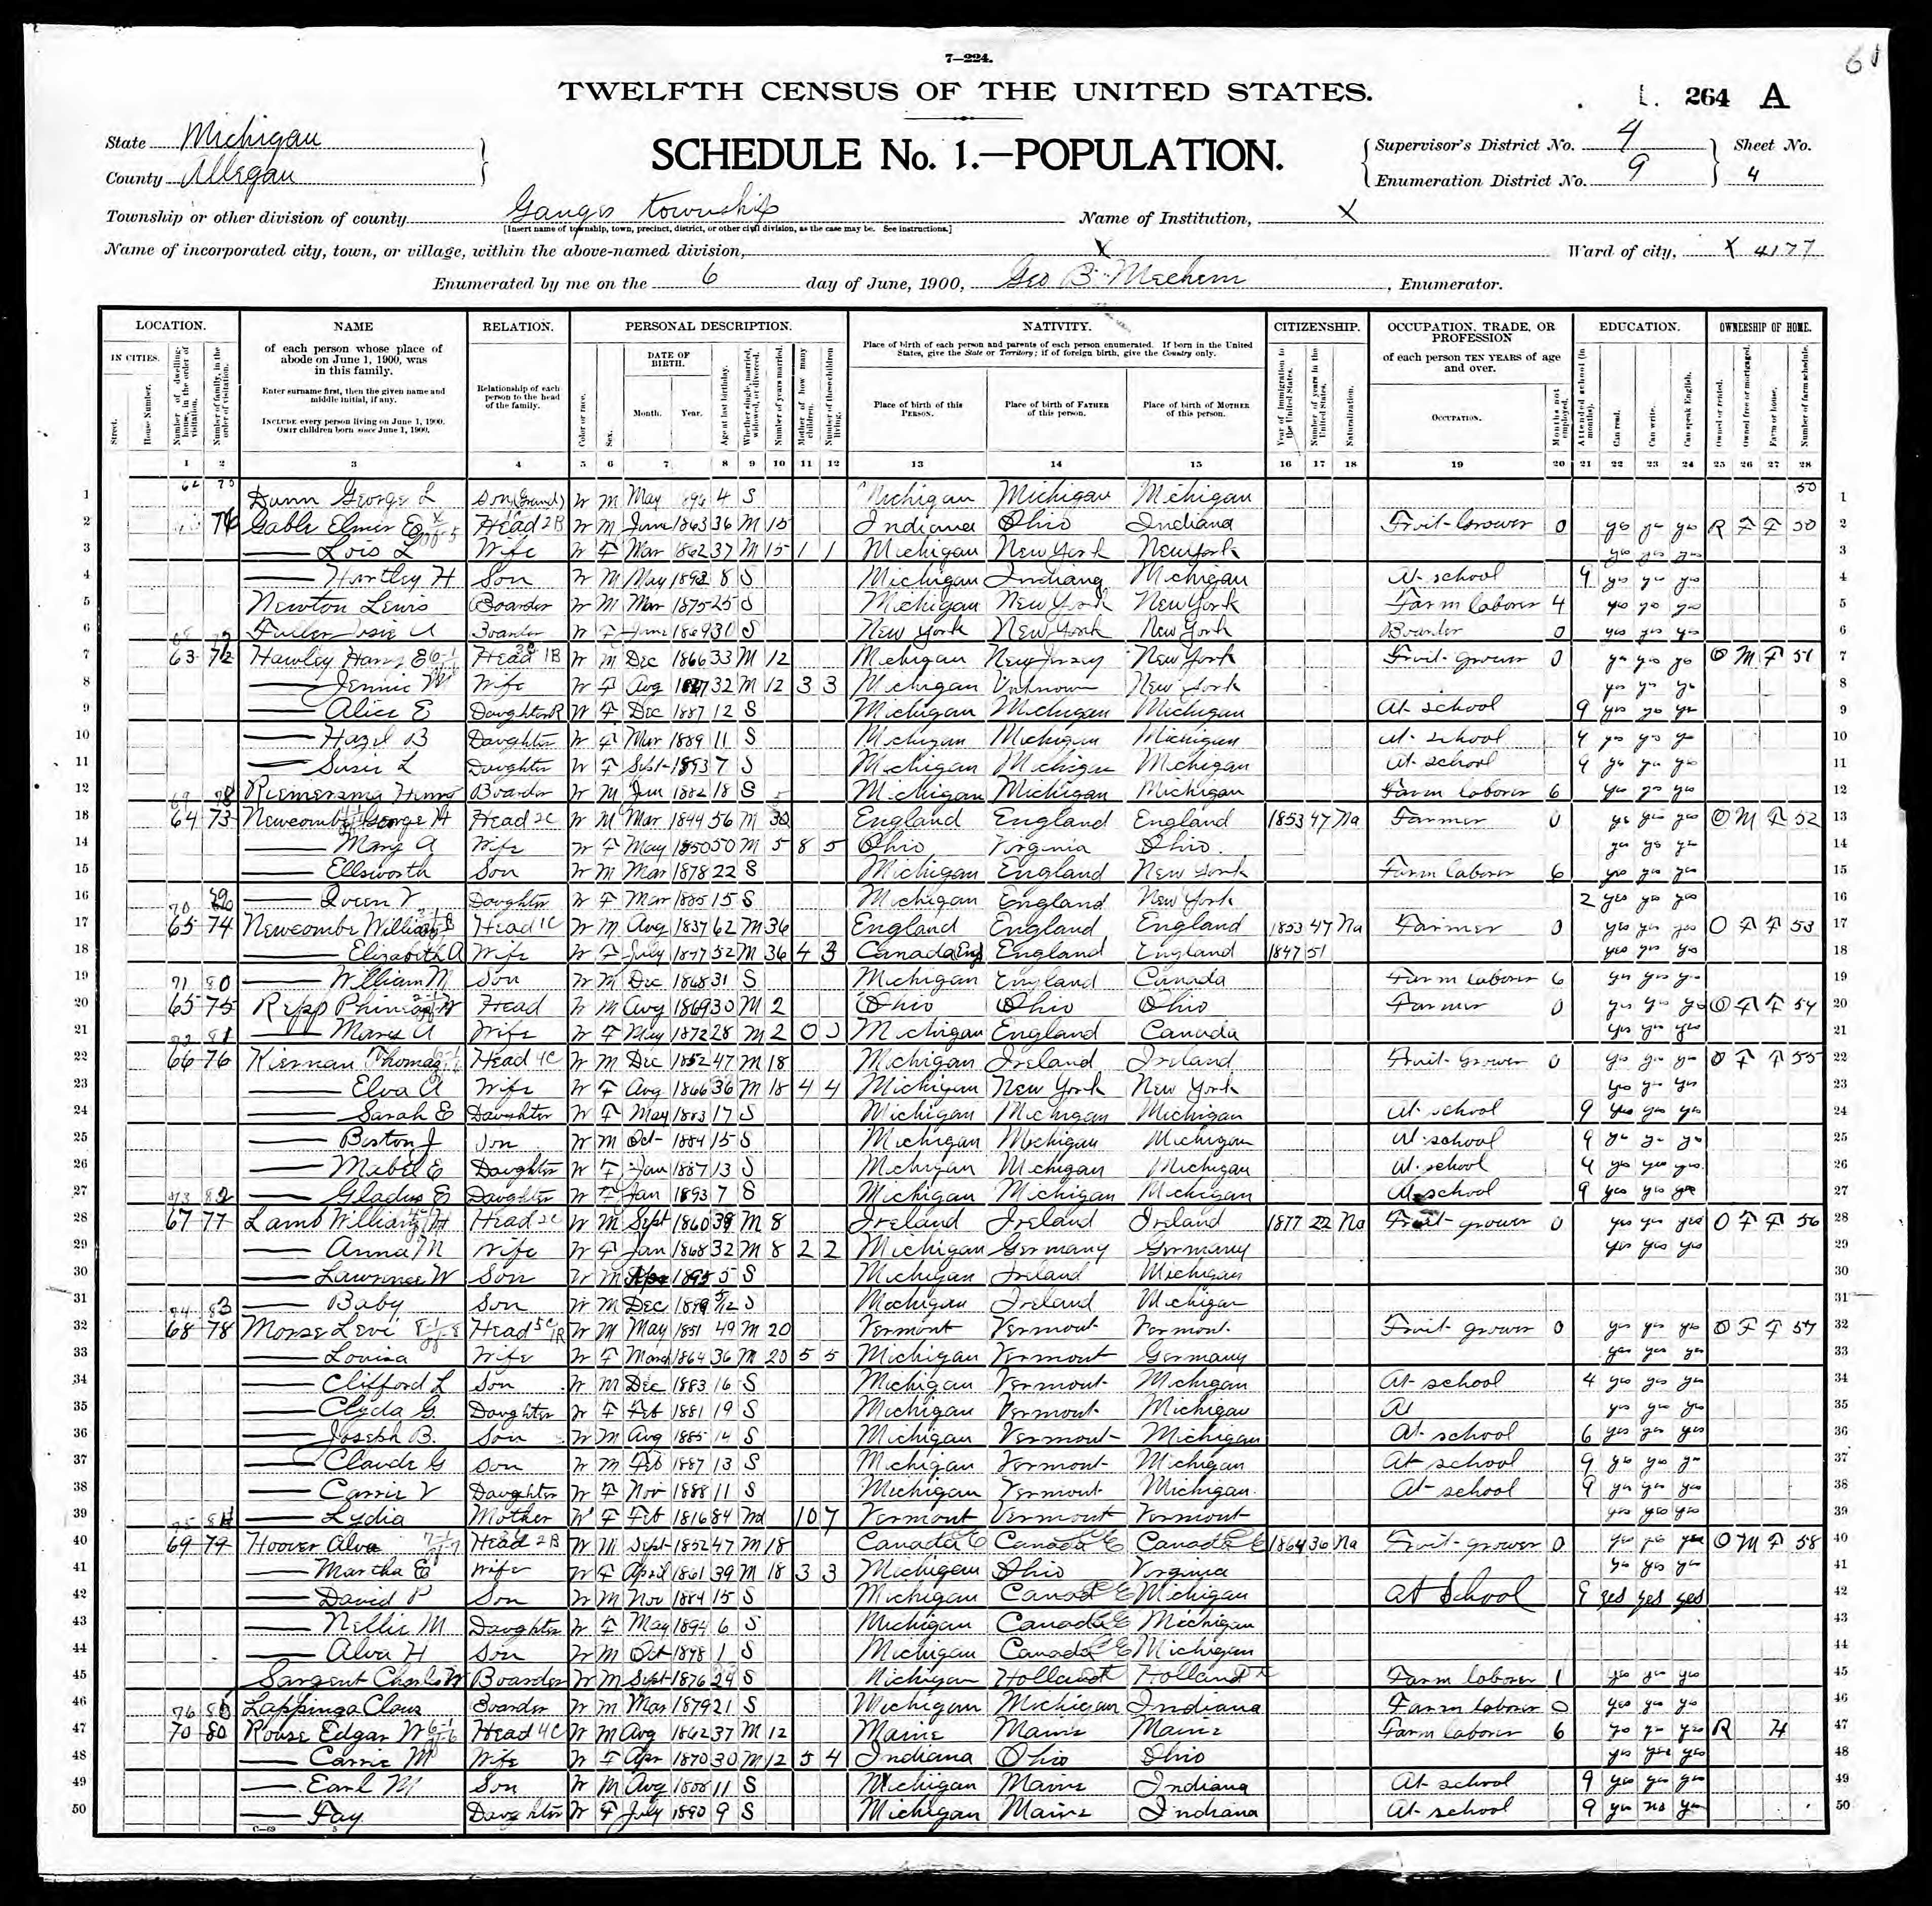 7—224.
61
TWELFTH CENSUS OF THE UNITED STATES.
264 A
State Michigan
County Allegan
SCHEDULE No. 1.—POPULATION.
Supervisor's District No. 4
Enumeration District No. 9
Sheet No. 4
Township or other division of county Ganges township
Name of Institution, X
[Insert name of township, town, precinct, district, or other civil division, as the case may be. See instructions.]
Name of incorporated city, town, or village, within the above-named division, X
Ward of city, X 4177
Enumerated by me on the 6 day of June, 1900, Geo B Mechem, Enumerator.
LOCATION. NAME RELATION. PERSONAL DESCRIPTION. NATIVITY. CITIZENSHIP. OCCUPATION, TRADE, OR PROFESSION EDUCATION. OWNERSHIP OF HOME.
IN CITIES.
Street.
House Number.
Number of dwelling-house, in the order of visitation.
Number of family, in the order of visitation.
of each person whose place of abode on June 1, 1900, was in this family.
Enter surname first, then the given name and middle initial, if any.
INCLUDE every person living on June 1, 1900.
OMIT children born since June 1, 1900.
Relationship of each person to the head of the family.
Color or race.
Sex.
DATE OF BIRTH.
Month. Year.
Age at last birthday.
Whether single, married, widowed, or divorced.
Number of years married.
Mother of how many children.
Number of these children living.
Place of birth of each person and parents of each person enumerated. If born in the United States, give the State or Territory; if of foreign birth, give the Country only.
Place of birth of this PERSON.
Place of birth of FATHER of this person.
Place of birth of MOTHER of this person.
Year of immigration to the United States.
Number of years in the United States.
Naturalization.
of each person TEN YEARS of age and over.
OCCUPATION.
Months not employed.
Attended school (in months).
Can read.
Can write.
Can speak English.
Owned or rented.
Owned free or mortgaged.
Farm or house.
Number of farm schedule.
1 2 3 4 5 6 7 8 9 10 11 12 13 14 15 16 17 18 19 20 21 22 23 24 25 26 27 28
1 Dunn George L Son (Grand) W M May 4 S Michigan Michigan Michigan 50 1
2 Gable Elmer E Head W M June 1863 36 M 15 Indiana Ohio Indiana Fruit Grower 0 yes yes yes R F F 50 2
3 — Lois L Wife W F Mar 1862 37 M 15 1 1 Michigan New York New York yes yes yes 3
4 — Hartley H Son W M May 1892 8 S Michigan Indiana Michigan At school 9 yes yes yes 4
5 Newton Lewis Boarder W M Mar 1875 25 S Michigan New York New York Farm laborer 4 yes yes yes 5
6 Fuller A Boarder W F June 1869 30 S New York New York New York Boarder 0 yes yes yes 6
7 63 72 Hawley Harry E Head 1B W M Dec 1866 33 M 12 Michigan New Jersey New York Fruit grower 0 yes yes yes O M F 51 7
8 — Jennie M Wife W F Aug 32 M 12 3 3 Michigan Unknown New York yes yes yes 8
9 — Alice E Daughter W F Dec 1887 12 S Michigan Michigan Michigan At school 9 yes yes yes 9
10 — Hazel B Daughter W F Mar 1889 11 S Michigan Michigan Michigan At school 9 yes yes yes 10
11 — Susie L Daughter W F Sept 1893 7 S Michigan Michigan Michigan At school 9 yes yes yes 11
12 Riemersma Henry Boarder W M Jun 1882 18 S Michigan Michigan Michigan Farm laborer 6 yes yes yes 12
13 64 73 Newcombe George H Head 2C W M Mar 1844 56 M 30 England England England 1853 47 Na Farmer 0 yes yes yes O M F 52 13
14 — Mary A Wife W F May 1850 50 M 5 8 5 Ohio Virginia Ohio yes yes yes 14
15 — Ellsworth Son W M Mar 1878 22 S Michigan England New York Farm laborer 6 yes yes yes 15
16 — Queen V Daughter W F Mar 1885 15 S Michigan England New York 2 yes yes yes 16
17 65 74 Newcombe William Head 1C W M Aug 1837 62 M 36 England England England 1853 47 Na Farmer 0 yes yes yes O F F 53 17
18 — Elizabeth A Wife W F July 1847 52 M 36 4 3 Canada Eng England England 1847 51 yes yes yes 18
19 — William M Son W M Dec 1868 31 S Michigan England Canada Farm laborer 6 yes yes yes 19
20 65 75 Repp Phineas W Head W M Aug 1869 30 M 2 Ohio Ohio Ohio Farmer 0 yes yes yes O F F 54 20
21 — Mary A Wife W F May 1872 28 M 2 0 0 Michigan England Canada yes yes yes 21
22 66 76 Kiernan Thomas Head 4C W M Dec 1852 47 M 18 Michigan Ireland Ireland Fruit Grower 0 yes yes yes O F F 55 22
23 — Elva A Wife W F Aug 1866 36 M 18 4 4 Michigan New York New York yes yes yes 23
24 — Sarah E Daughter W F May 1883 17 S Michigan Michigan Michigan At school 9 yes yes yes 24
25 — Boston J Son W M Oct 1884 15 S Michigan Michigan Michigan At school 9 yes yes yes 25
26 — Mabel E Daughter W F Jan 1887 13 S Michigan Michigan Michigan At school 9 yes yes yes 26
27 — Gladys E Daughter W F Jan 1893 7 S Michigan Michigan Michigan At school 9 yes yes yes 27
28 67 77 Lamb William H Head 2C W M Sept 1860 39 M 8 Ireland Ireland Ireland 1877 22 Na Fruit grower 0 yes yes yes O F F 56 28
29 — Anna M Wife W F Jan 1868 32 M 8 2 2 Michigan Germany Germany yes yes yes 29
30 — Lawrence W Son W M Apr 1895 5 S Michigan Ireland Michigan 30
31 — Baby Son W M Dec 1899 5/12 S Michigan Ireland Michigan 31
32 68 78 Morse Levi Head 5C W M May 1851 49 M 20 Vermont Vermont Vermont Fruit grower 0 yes yes yes O F F 57 32
33 — Louisa Wife W F March 1864 36 M 20 5 5 Michigan Vermont Germany yes yes yes 33
34 — Clifford L Son W M Dec 1883 16 S Michigan Vermont Michigan At school 4 yes yes yes 34
35 — Clyda G. Daughter W F Feb 1881 19 S Michigan Vermont Michigan At yes yes yes 35
36 — Joseph B. Son W M Aug 1885 14 S Michigan Vermont Michigan At school 6 yes yes yes 36
37 — Claude G Son W M Feb 1887 13 S Michigan Vermont Michigan At school 9 yes yes yes 37
38 — Carrie V Daughter W F Nov 1888 11 S Michigan Vermont Michigan At school 9 yes yes yes 38
39 — Lydia Mother W F Feb 1816 84 Wd 10 7 Vermont Vermont Vermont yes yes yes 39
40 69 79 Hoover Alva Head 2B W M Sept 1852 47 M 18 Canada E Canada E Canada E 1864 36 Na Fruit grower 0 yes yes yes O M F 58 40
41 — Martha E Wife W F April 1861 39 M 18 3 3 Michigan Ohio Virginia yes yes yes 41
42 — David P Son W M Nov 1884 15 S Michigan Canada E Michigan At School 9 yes yes yes 42
43 — Nellie M Daughter W F May 1894 6 S Michigan Canada E Michigan 43
44 — Alva H Son W M Oct 1898 1 S Michigan Canada E Michigan 44
45 Sargent Charlie W Boarder W M Sept 1876 24 S Michigan Holland Holland Farm laborer 1 yes yes yes 45
46 Lappinga Claus Boarder W M Mar 1879 21 S Michigan Michigan Indiana Farm laborer 0 yes yes yes 46
47 70 80 Rouse Edgar W Head 4C W M Aug 1862 37 M 12 Maine Maine Maine Farm laborer 6 yes yes yes R H 47
48 — Carrie M Wife W F Apr 1870 30 M 12 5 4 Indiana Ohio Ohio yes yes yes 48
49 — Earl M Son W M Aug 1888 11 S Michigan Maine Indiana At school 9 yes yes yes 49
50 — Fay Daughter W F July 1890 9 S Michigan Maine Indiana At school 9 yes no yes 50